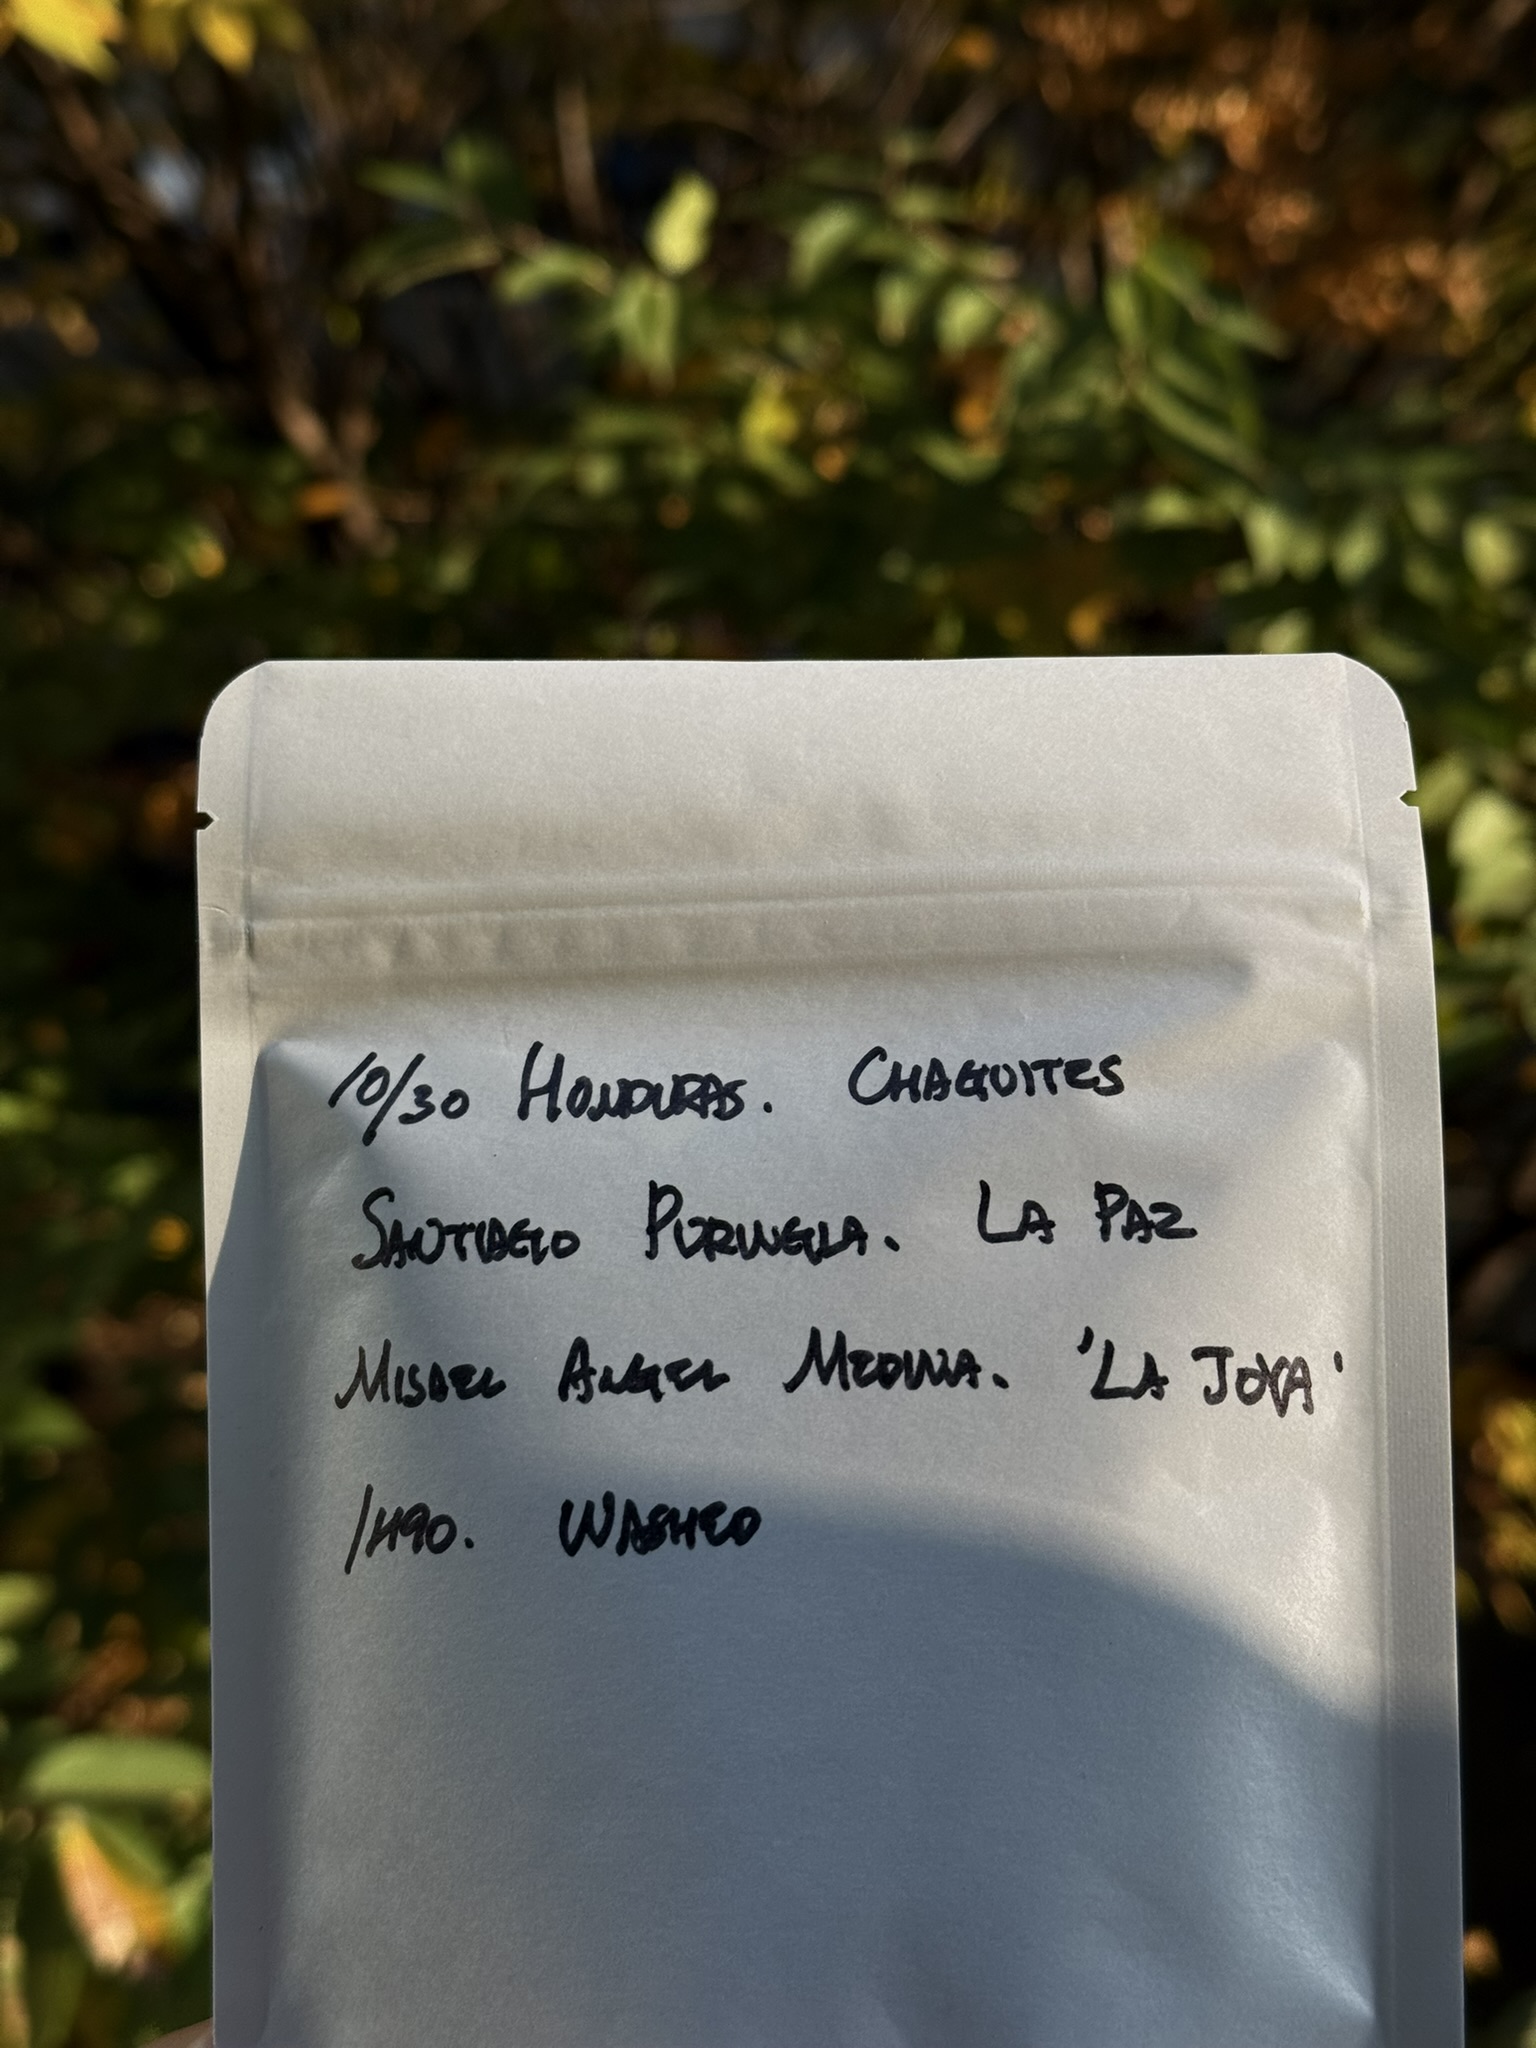 10/30 HONDURAS. CHAGUITES
SANTIAGO PURINGLA. LA PAZ
MISAEL ANGEL MEDINA. 'LA JOYA'
/H90. WASHED